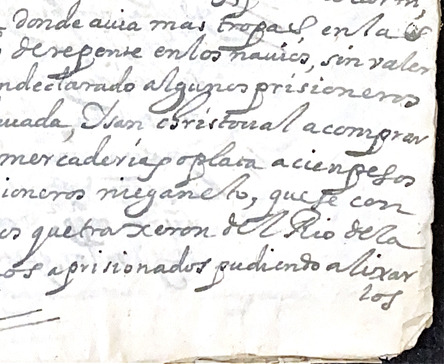 donde auia mas tropas en la
de repente en los nauios, sin valer
ndeclarado algunos prisioneros
ueada, Y san christoual a comprar
mercaderias o plata a cien pesos
sioneros niegan esto, que se con
os que traxeron del Rio de la
os aprisionados pudiendo alixar
los